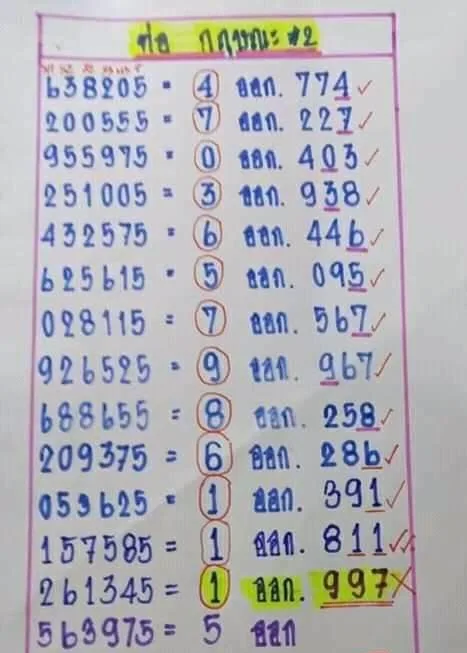 พ่อ กฤษณะ #2
638205 = 4 ออก. 774 ✓
200555 = 7 ออก. 227 ✓
955975 = 0 ออก. 403 ✓
251005 = 3 ออก. 938 ✓
432575 = 6 ออก. 446 ✓
625615 = 5 ออก. 095 ✓
028115 = 7 ออก. 567 ✓
926525 = 9 ออก. 967 ✓
688655 = 8 ออก. 258 ✓
209375 = 6 ออก. 286 ✓
053625 = 1 ออก. 391 ✓
157585 = 1 ออก. 811 ✓✓
261345 = 1 ออก. 997 ✗
563975 = 5 ออก